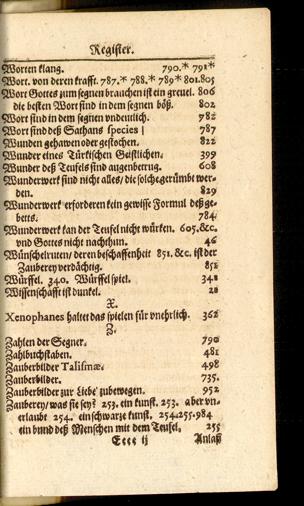 Register.
Worten klang. 790.* 791*
Wort. von deren krafft. 787.* 788.* 789* 801.805
Wort Gottes zum segnen brauchen ist ein greuel. 806
die besten Wort sind in dem segnen böß. 802
Wort sind in dem segnen vndeutlich. 782
Wort sind deß Sathans species | 787
Wunden gehawen oder gestochen. 822
Wunder eines Türkischen Geistlichen. 399
Wunder deß Teufels sind augenbetrug. 608
Wunderwerk sind nicht alles/ die solche gerümbt wer-
den. 829
Wunderwerk erforderen kein gewisse Formul deß ge-
betts. 784
Wunderwerk kan der Teufel nicht würken. 605.&c.
vnd Gottes nicht nachthun. 46
Wünschelruten/ deren beschaffenheit 851. &c. ist der
Zauberey verdächtig. 852
Würffel. 340. Würffelspiel. 342
Wissenschafft ist dunkel. 28
X.
Xenophanes haltet das spielen für vnehrlich. 362
Z.
Zahlen der Segner. 790
Zahlbuchstaben. 481
Zauberbilder Talismæ. 498
Zauberbilder. 735.
Zauberbilder zur Liebe zubewegen. 952
Zauberey/ was sie sey? 253. ein kunst. 253. aber vn-
erlaubt 254. ein schwarze kunst. 254.255.984
ein bund deß Menschen mit dem Teufel. 255
Eeee ij Anlaß